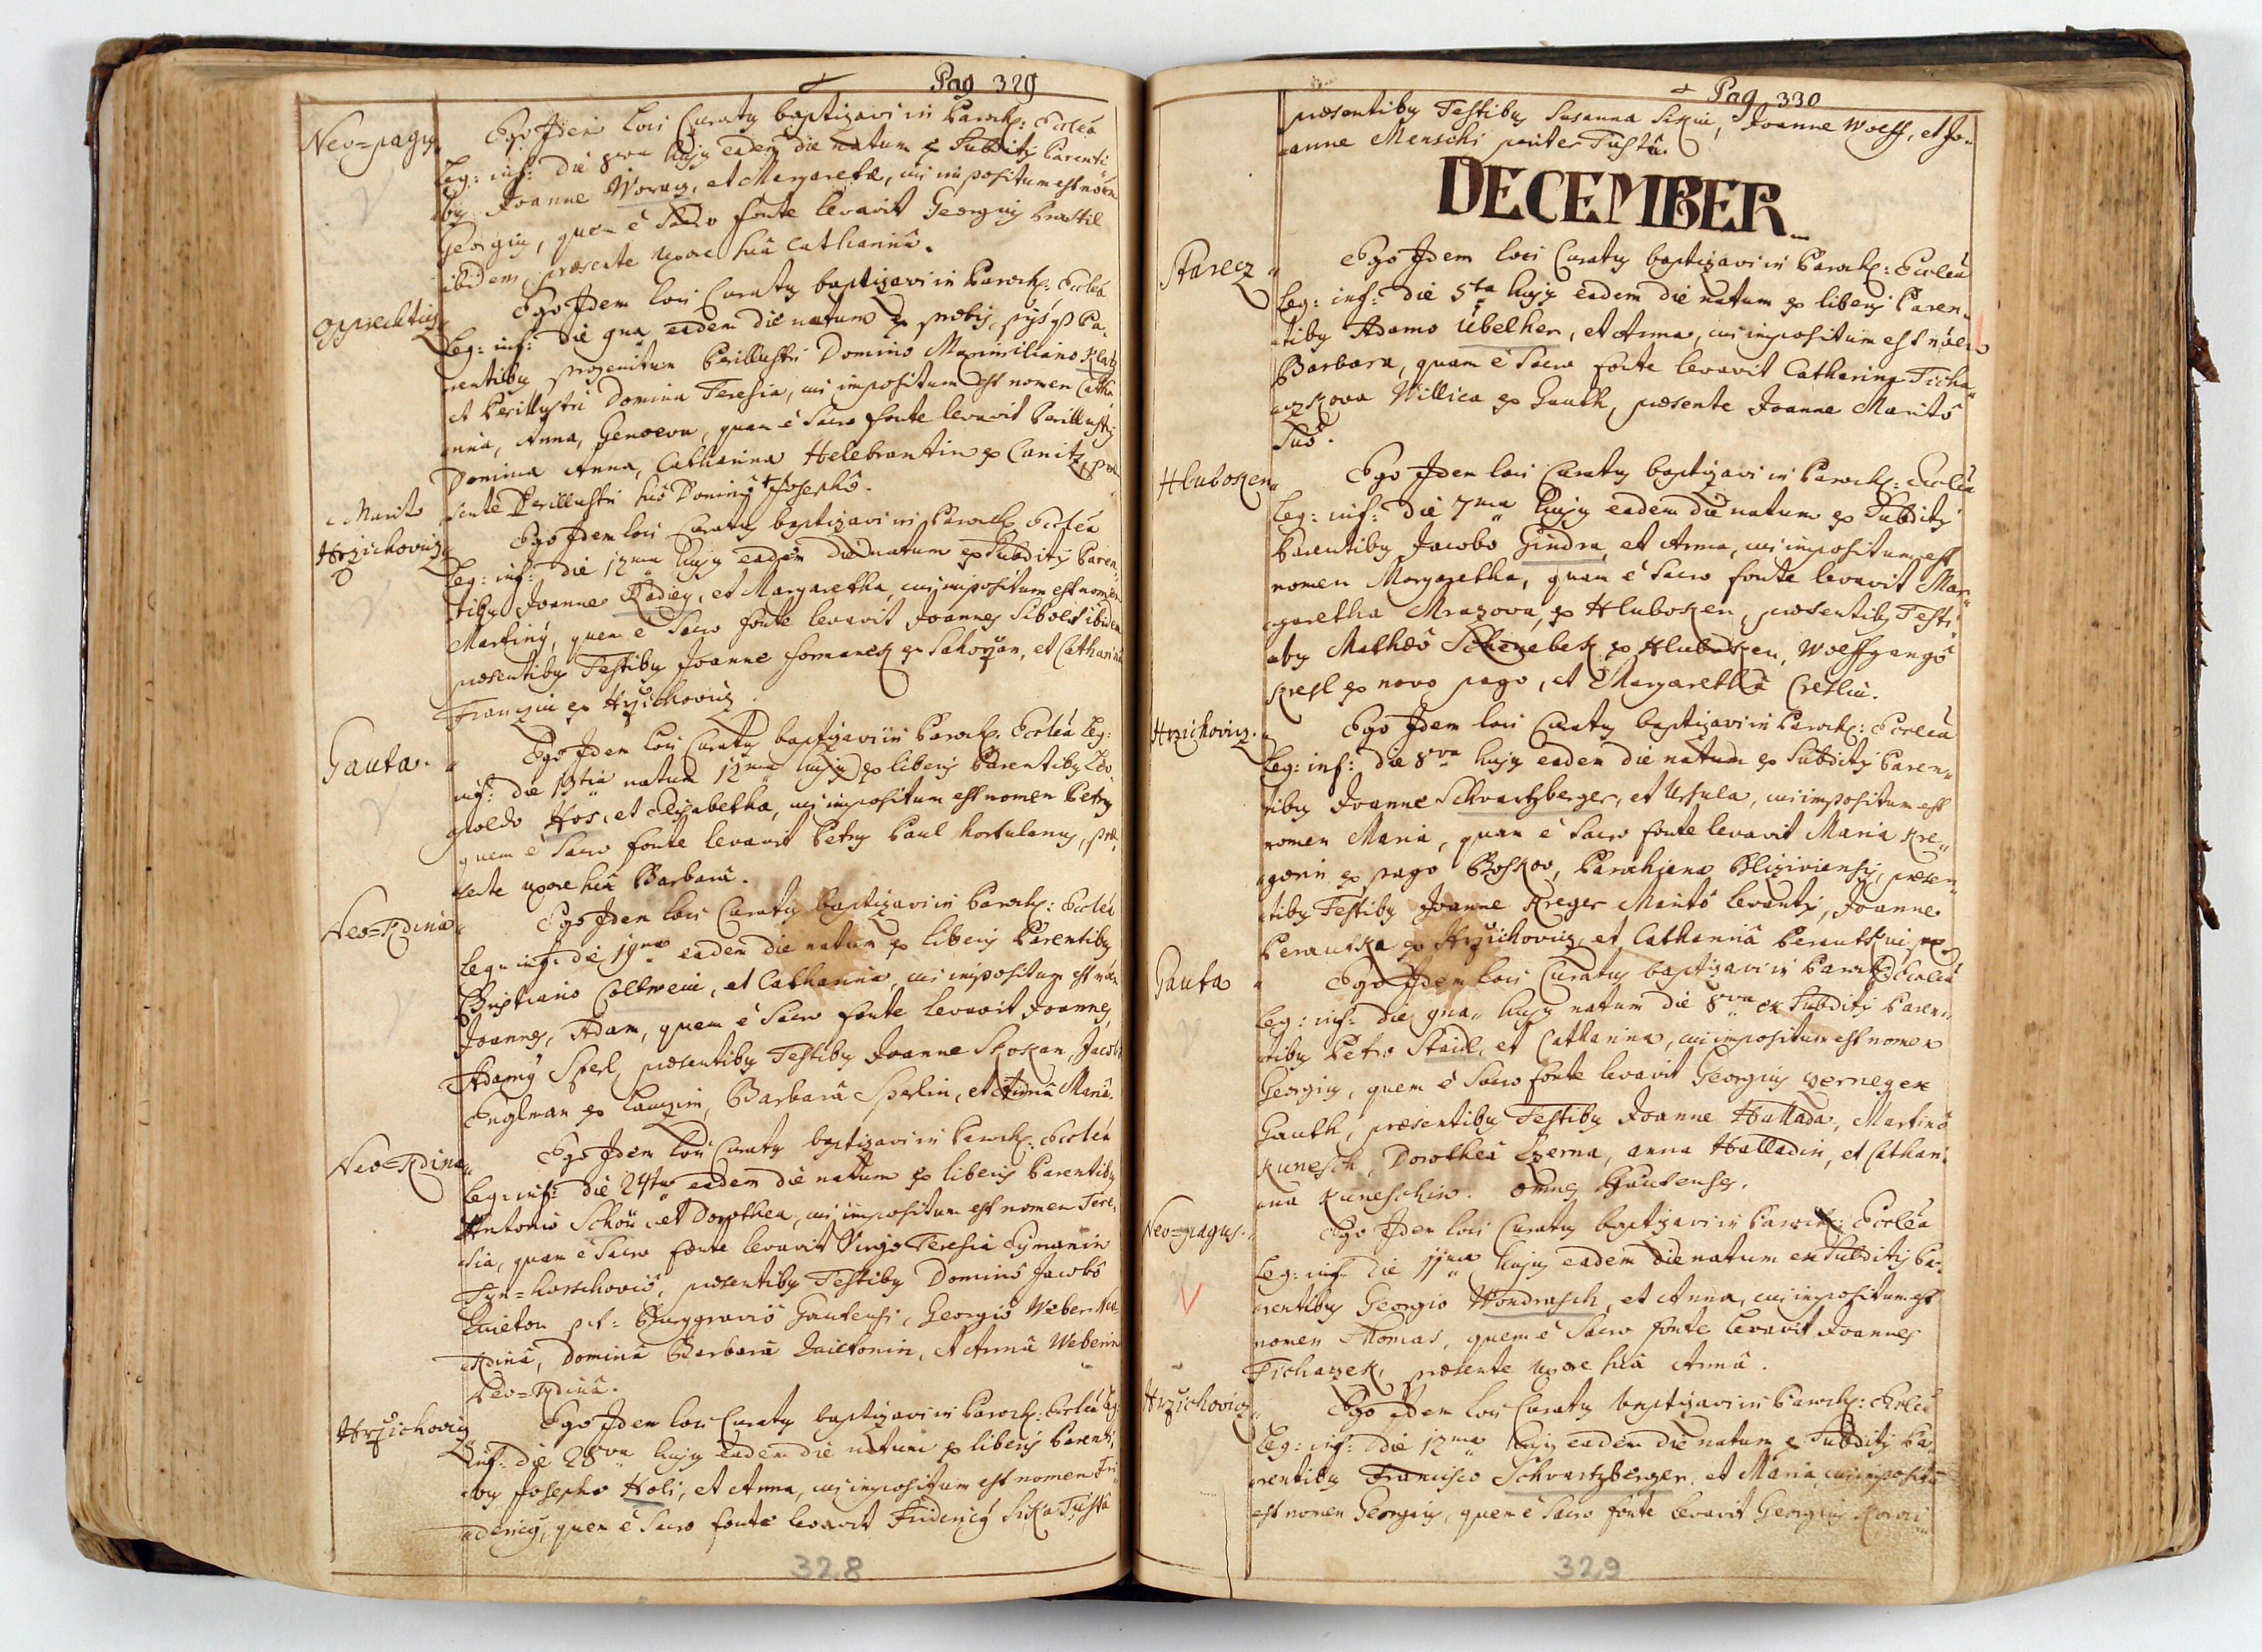 Pag 329
Neo=pagus.
Ego Idem loci Curatus baptizavi in Paroch: Eccleâ
Leg: inf: die 8va hujus eadem die natum ex Subditis Parenti-
bus Joanne Woracz, et Margaretâ, cui impositum est nomen
Georgius, quem è Sacro fonte levavit Georgius
ibidem, præsente uxore suâ Catharinâ.
Ego Idem loci Curatus baptizavi in Paroch: Eccleâ
Leg: inf: die 9na eadem die natum ex probis, pijsq Pa-
rentibus progenitum Perillustri Domino Maximiliano Klatz
et Perillustri Domina Teresia, cui impositum est nomen Catha
rina, Anna, Genoeva, quam è Sacro fonte levavit Perillustris
Domina Anna, Catharina Helebrantin ex Canitz, præ
Marito
sente Perillustri suô Dominô + Josephô.
Hrzichowicz
Ego Idem loci Curatus baptizavi in Paroch: Eccleâ
Leg: inf: die 12ma hujus eadem die natum ex Subditis Paren-
tibus Joanne Radiey, et Margaretha, cui impositum est nomen
Martinus, quem è Sacro fonte levavit Joannes Sibolet ibidem
præsentibus Testibus Joanne Fomanek ex Sahorzan, et Catharina
ex Hrzichowicz.
Gauta.
Ego Idem loci Curatus baptizavi in Paroch: Eccleâ Leg:
inf: die 13tia natum 12ma hujus ex liberis Parentibus Leo
poldo Hos, et Elisabetha, cui impositum est nomen Petrus
quem è Sacro fonte levavit Petrus Paul hortulanus, præ
sente uxore suâ Barbarâ.
Neo=Kdina.
Ego Idem loci Curatus baptizavi in Paroch: Eccleâ
Leg: inf: die 19na eadem die natum ex liberis Parentibus
Christiano, et Catharina, cui impositum est nomen
Joannes, Adam, quem è Sacro fonte levavit Joannes,
Adamus Sperl, præsentibus Testibus Joanne Skokan, Jacobo
Englman ex, Barbarâ Sperlin, et Annâ Mariâ.
Neo=Kdina
Ego Idem loci Curatus baptizavi in Paroch: Eccleâ
Leg: inf: die 24ta eadem die natum ex liberis Parentibus
Antonio Schön, et Dorothea, cui impositum est nomen Tere-
sia, quam è Sacro fonte levavit Virgo Teresia
, præsentibus Testibus Dominô Jacobô
Quieton p:t: Burggraviô Gautensi, Georgiô Weber Neo-
Kdinâ, Dominâ Barbarâ Quietonin, et Annâ Weberin
Neo=Kdinâ.
Hrzichowicz
Ego Idem loci Curatus baptizavi in Paroch: Eccleâ Leg:
inf: die 28va hujus eadem die natum ex liberis Parenti-
bus Josepho Holi, et Anna, cui impositum est nomen Fri
dericus, quem è Sacro fonte levavit Fridericus Sika
328
Pag 330
præsentibus Testibus Susanna Sikin, Joanne Wolff, et Jo-
anne Menschi pariter Tustâ.
DECEMBER
Starecz
Ego Idem loci Curatus baptizavi in Paroch: Eccleâ
Leg: inf: die 5ta hujus eadem die natum ex liberis Paren-
tibus Adamo Übelher, et Anna, cui impositum est nomen
Barbara, quam è Sacro fonte levavit Catharina Ticha-
czkova Villica ex Gauth, præsente Joanne Maritô
Suô.
Hluboken
Ego Idem loci Curatus baptizavi in Paroch: Eccleâ
Leg: inf: die 7ma hujus eadem die natum ex Subditis
Parentibus Jacobo Gindra, et Anna, cui impositum est
nomen Margaretha, quam è Sacro fonte levavit Mar-
garetha Mrazova, ex Hluboken, præsentibus Testi-
bus Mathæô Schenebek ex Hluboken, Wolffgangô
Kresl ex novo pago, et Margarethâ Creslin.
Hrzichowicz.
Ego Idem loci Curatus baptizavi in Paroch: Eccleâ
Leg: inf: die 8va hujus eadem die natum ex Subditis Paren-
tibus Joanne Schvartzberger, et Ursula, cui impositum est
nomen Maria, quam è Sacro fonte levavit Maria Kre-
gerin ex pago Boskov, Parochiæ, præsen-
tibus Testibus Joanne Kreger Maritô Levantis, Joanne
Perautka ex Hrzichowicz, et Catharinâ Perautkin
Gauta
Ego Idem loci Curatus baptizavi in Paroch: Eccleâ
Leg: inf: die 9na hujus natum die 8va ex Subditis Paren-
tibus Petro Staidl, et Catharina, cui impositum est nomen
Georgius, quem è Sacro fonte levavit Georgius Czernegek
Gauth, præsentibus Testibus Joanne Hallada, Martinô
Kunesch, Dorotheâ Czerna, anna Halladin, et Cathari-
na Kuneschin. omnes Gautenses.
Neo=pagus.
Ego Idem loci Curatus baptizavi in Paroch: Eccleâ
Leg: inf: die 11ma hujus eadem die natum ex Subditis Pa-
rentibus Georgio Wondrasch, et Anna, cui impositum est
nomen Thomas, quem è Sacro fonte levavit Joannes
Tichaczek, præsente uxore suâ Annâ.
Hrzichowicz
Ego Idem loci Curatus baptizavi in Paroch: Eccleâ
Leg: inf: die 12ma hujus eadem die natum ex Subditis Pa-
rentibus Francisco Schvartzberger, et Maria, cui impositum
est nomen Georgius, quem è Sacro fonte levavit Georgius
329